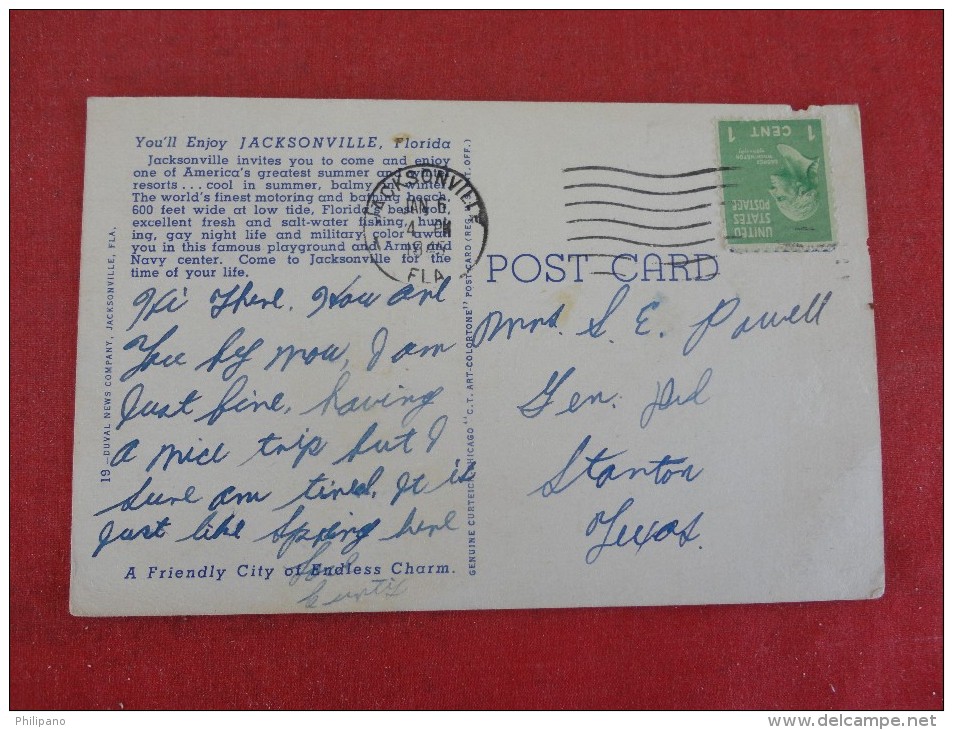 You'll Enjoy JACKSONVILLE, Florida
Jacksonville invites you to come and enjoy
one of America's greatest summer and winter
resorts . . . cool in summer, balmy in winter.
The world's finest motoring and bathing beach,
600 feet wide at low tide, Florida's best golf,
excellent fresh and salt-water fishing, hunt-
ing, gay night life and military color await
you in this famous playground and Army and
Navy center. Come to Jacksonville for the
time of your life.
Hi There, How are
You by now, I am
Just fine, having
a nice trip but I
sure am tired. It is
just like Spring here
Curtis
A Friendly City of Endless Charm.
19—DUVAL NEWS COMPANY, JACKSONVILLE, FLA.
GENUINE CURTEICH-CHICAGO "C.T. ART-COLORTONE" POST CARD (REG. U.S. PAT. OFF.)
JACKSONVILLE
JAN 6
4 PM
FLA.
1 CENT 1
UNITED
STATES
POSTAGE
POST CARD
Mrs. S. E. Powell
Gen. Del
Stanton
Texas.
Philipano
www.delcampe.net